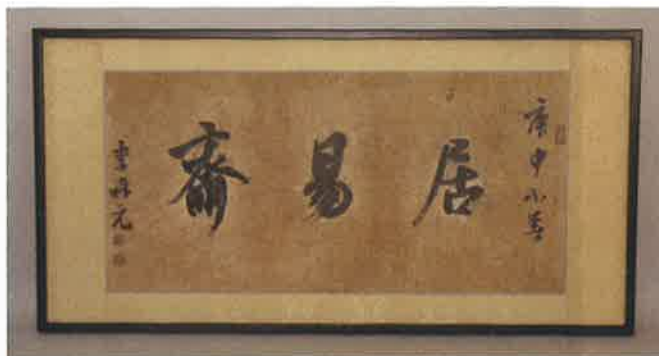 庚申小春
居易齋
李鼎元